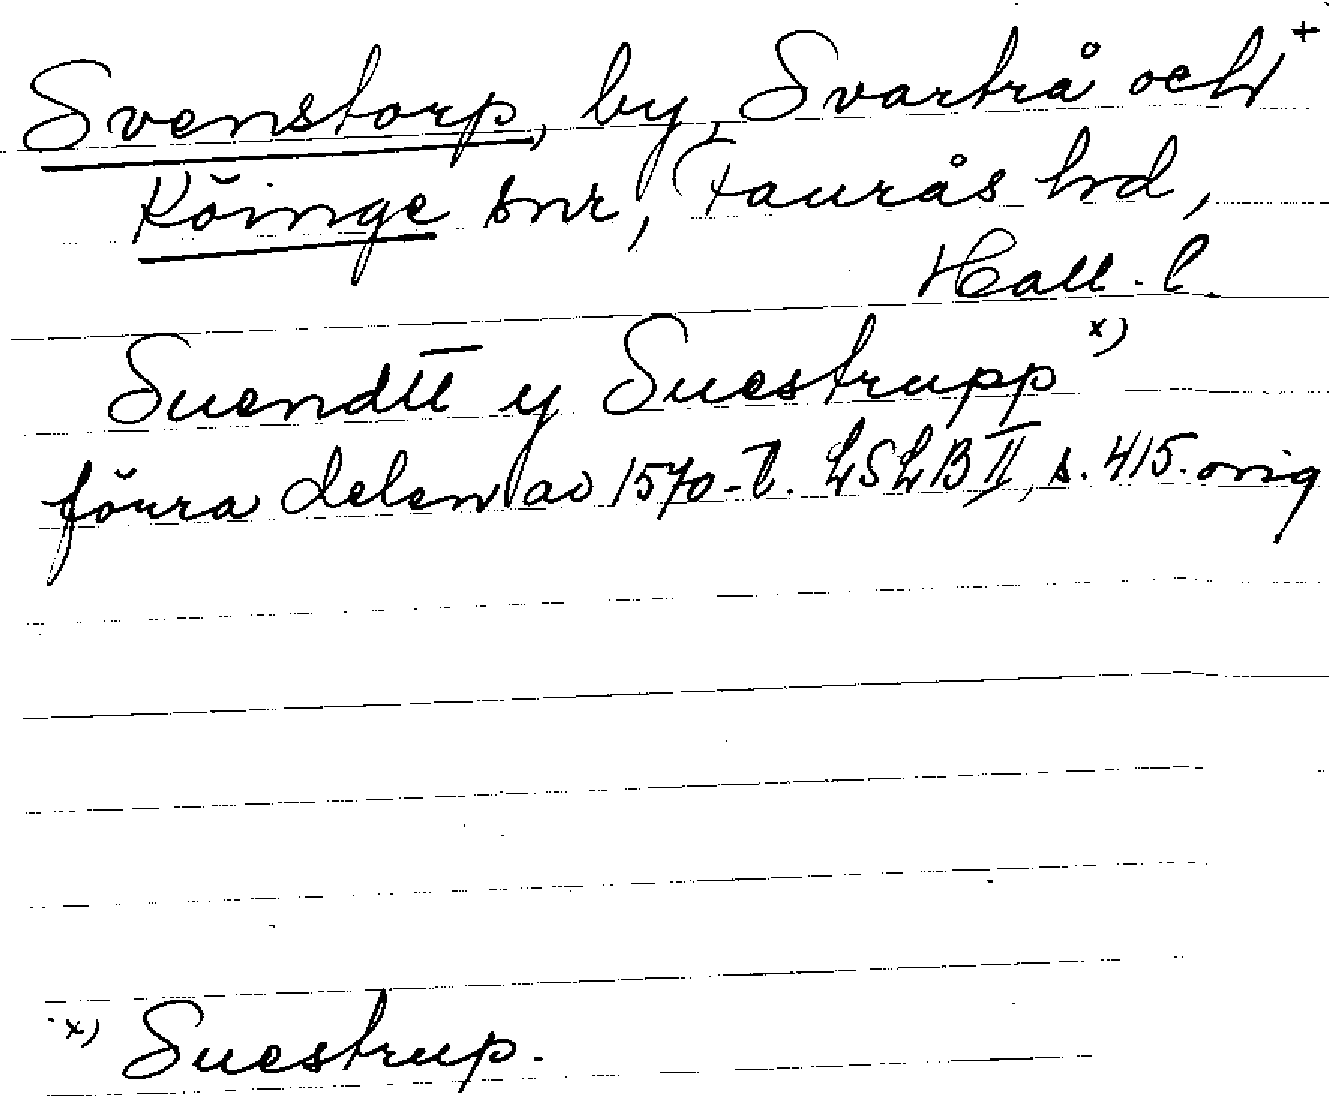 Svenstorp, by, Svartrå och +
Köinge snr, Faurås hd,
Hall. l.
Suendtt y Suestrupp x)
förra delen av 1570-t. LSLB II, s. 415. orig
x) Suestrup.